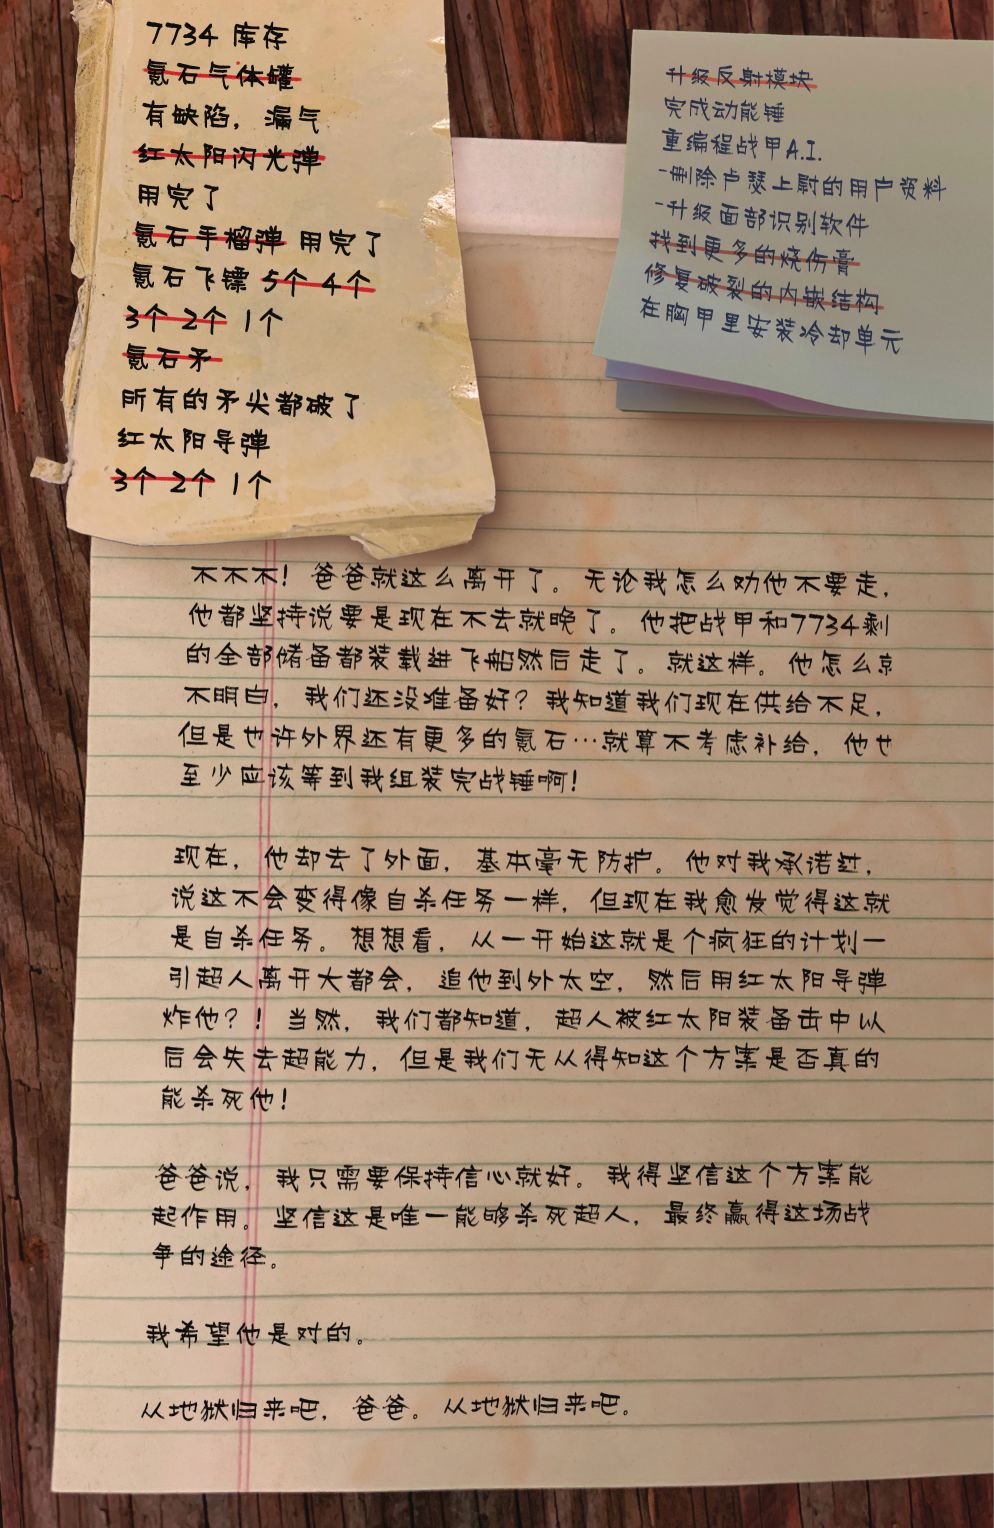 7734 库存
氪石气体罐
有缺陷，漏气
红太阳闪光弹
用完了
氪石手榴弹 用完了
氪石飞镖 5个 4个
3个 2个 1个
氪石矛
所有的矛尖都破了
红太阳导弹
3个 2个 1个
升级反射模块
完成动能锤
重编程战甲A.I.
-删除卢瑟上尉的用户资料
-升级面部识别软件
找到更多的烧伤膏
修复破裂的内嵌结构
在胸甲里安装冷却单元
不不不！爸爸就这么离开了。无论我怎么劝他不要走，
他都坚持说要是现在不去就晚了。他把战甲和7734剩
的全部储备都装载进飞船然后走了。就这样。他怎么
不明白，我们还没准备好？我知道我们现在供给不足，
但是也许外界还有更多的氪石…就算不考虑补给，他
至少应该等到我组装完战锤啊！
现在，他却去了外面，基本毫无防护。他对我承诺过，
说这不会变得像自杀任务一样，但现在我愈发觉得这就
是自杀任务。想想看，从一开始这就是个疯狂的计划—
引超人离开大都会，追他到外太空，然后用红太阳导弹
炸他？！当然，我们都知道，超人被红太阳装备击中以
后会失去超能力，但是我们无从得知这个方案是否真的
能杀死他！
爸爸说，我只需要保持信心就好。我得坚信这个方案能
起作用。坚信这是唯一能够杀死超人，最终赢得这场战
争的途径。
我希望他是对的。
从地狱归来吧，爸爸。从地狱归来吧。